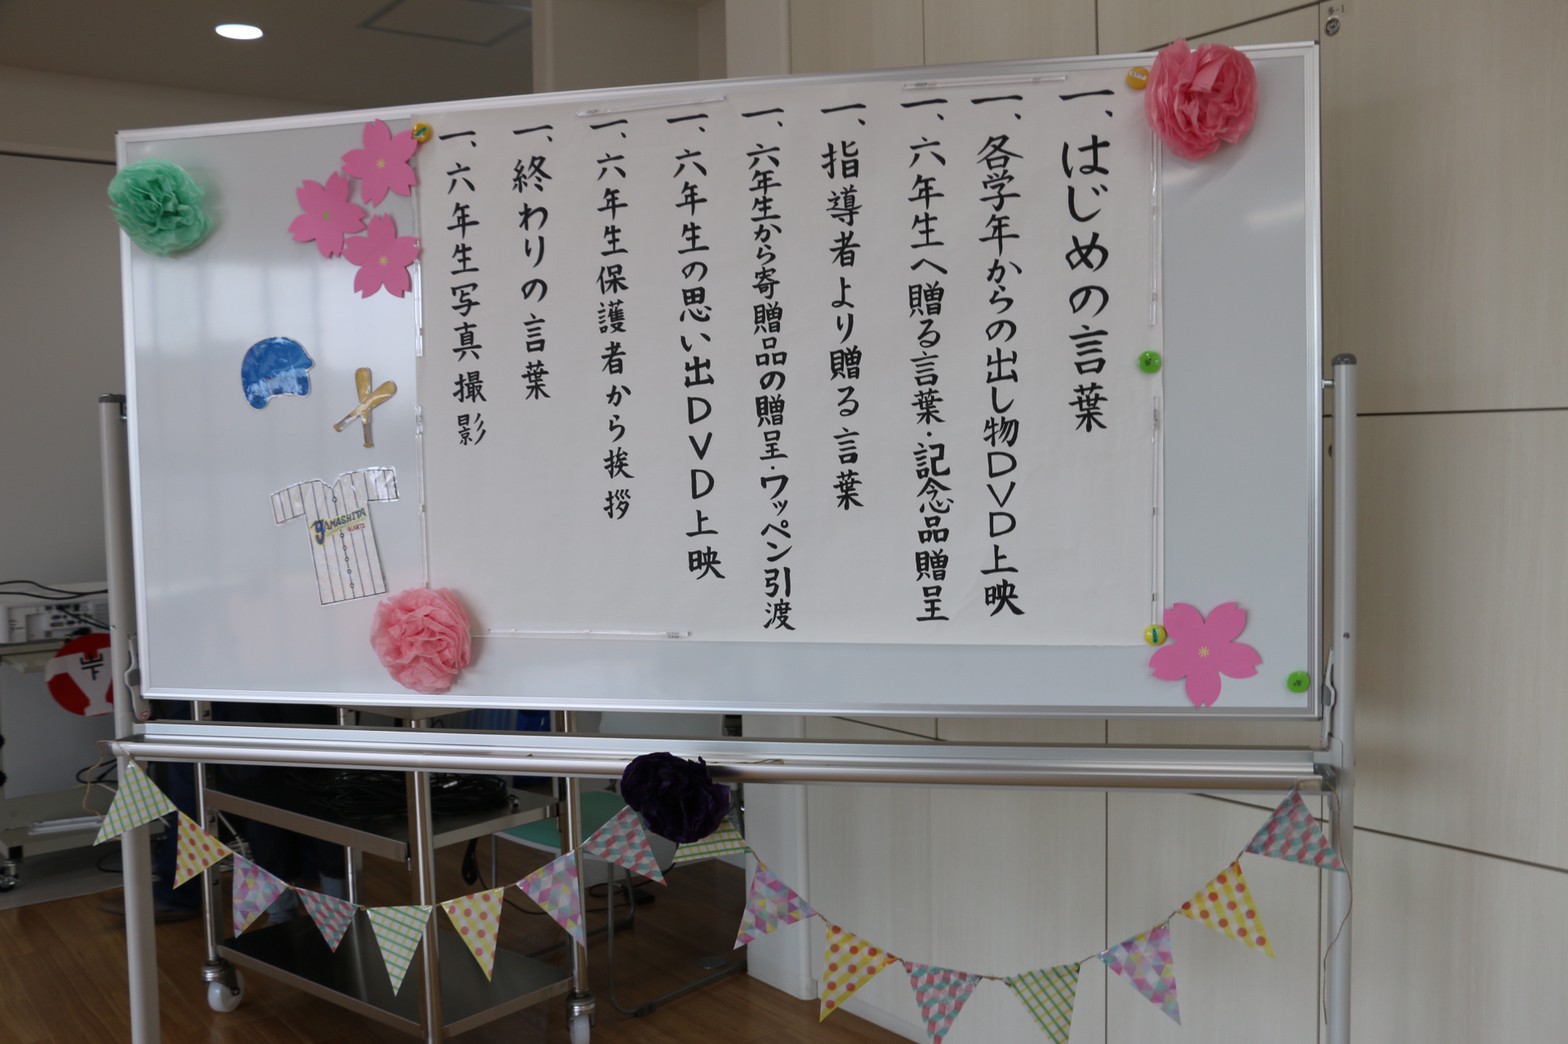 一、はじめの言葉
一、各学年からの出し物DVD上映
一、六年生へ贈る言葉・記念品贈呈
一、指導者より贈る言葉
一、六年生から寄贈品の贈呈・ワッペン引渡
一、六年生の思い出DVD上映
一、六年生保護者から挨拶
一、終わりの言葉
一、六年生写真撮影
YAMASHITA